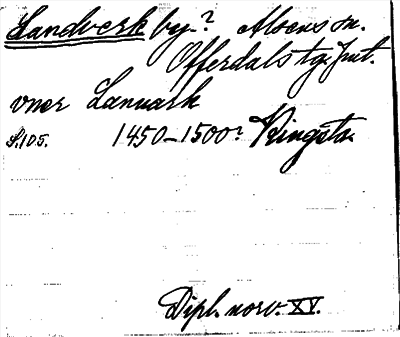 Landverk by? Alsens sn.
Offerdals tg. Jmt.
vner Lanuark
S.105. 1450-1500? Kingsta.
Dipl. norv. XV.